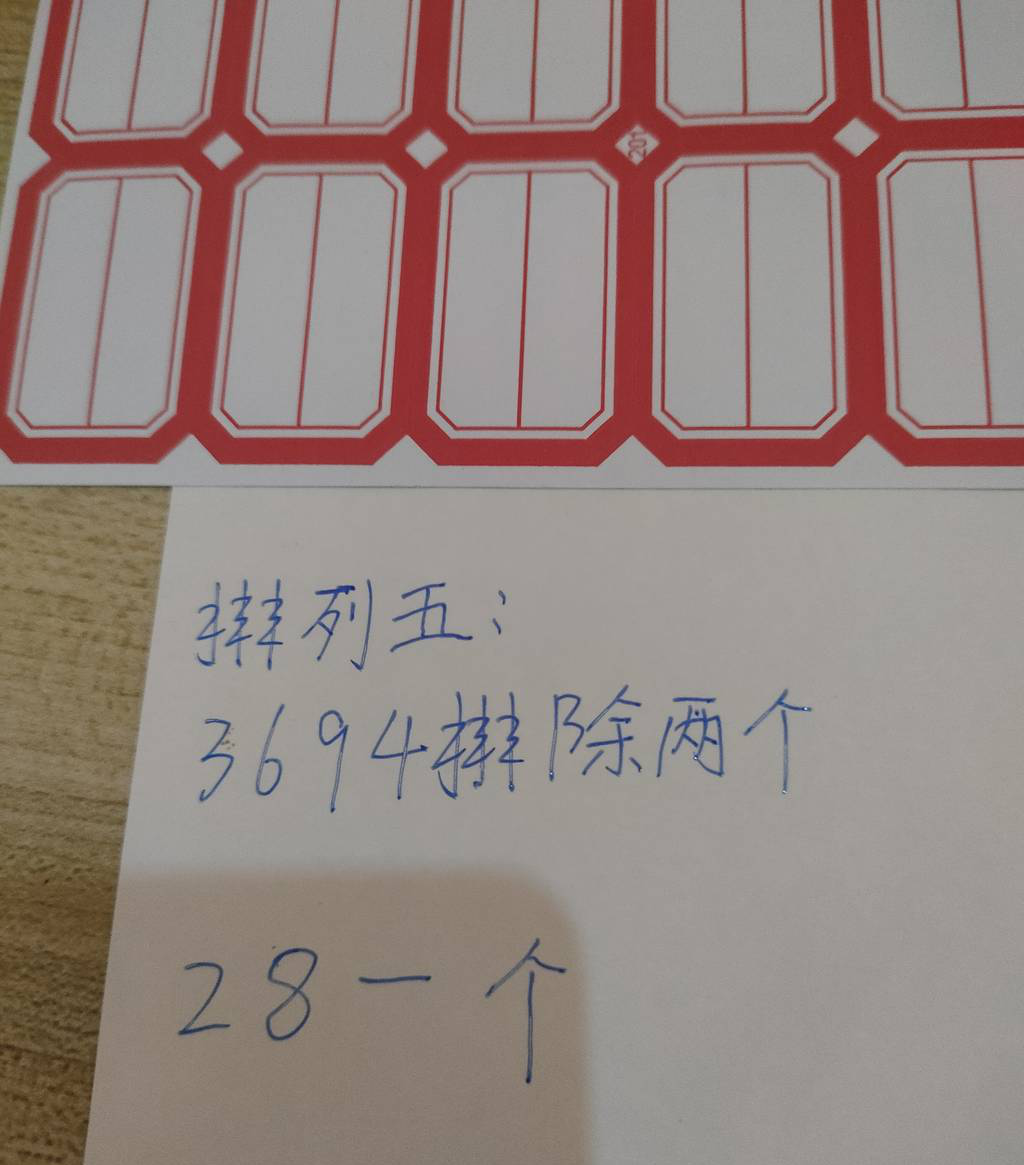 201
排列五:
3694排除两个
28一个